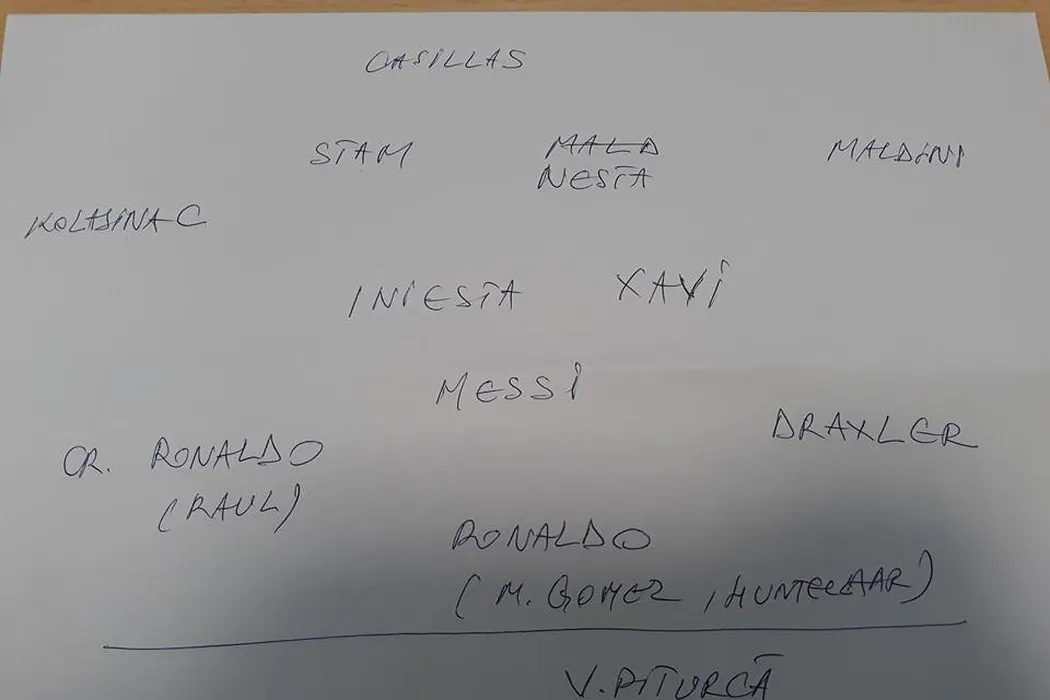 CASILLAS
STAM MALD MALDINI
NESTA
KOLASINAC
INIESTA XAVI
MESSI
CR. RONALDO DRAXLER
(RAUL)
RONALDO
(M. GOMEZ, HUNTELAAR)
V. PITURCĂ